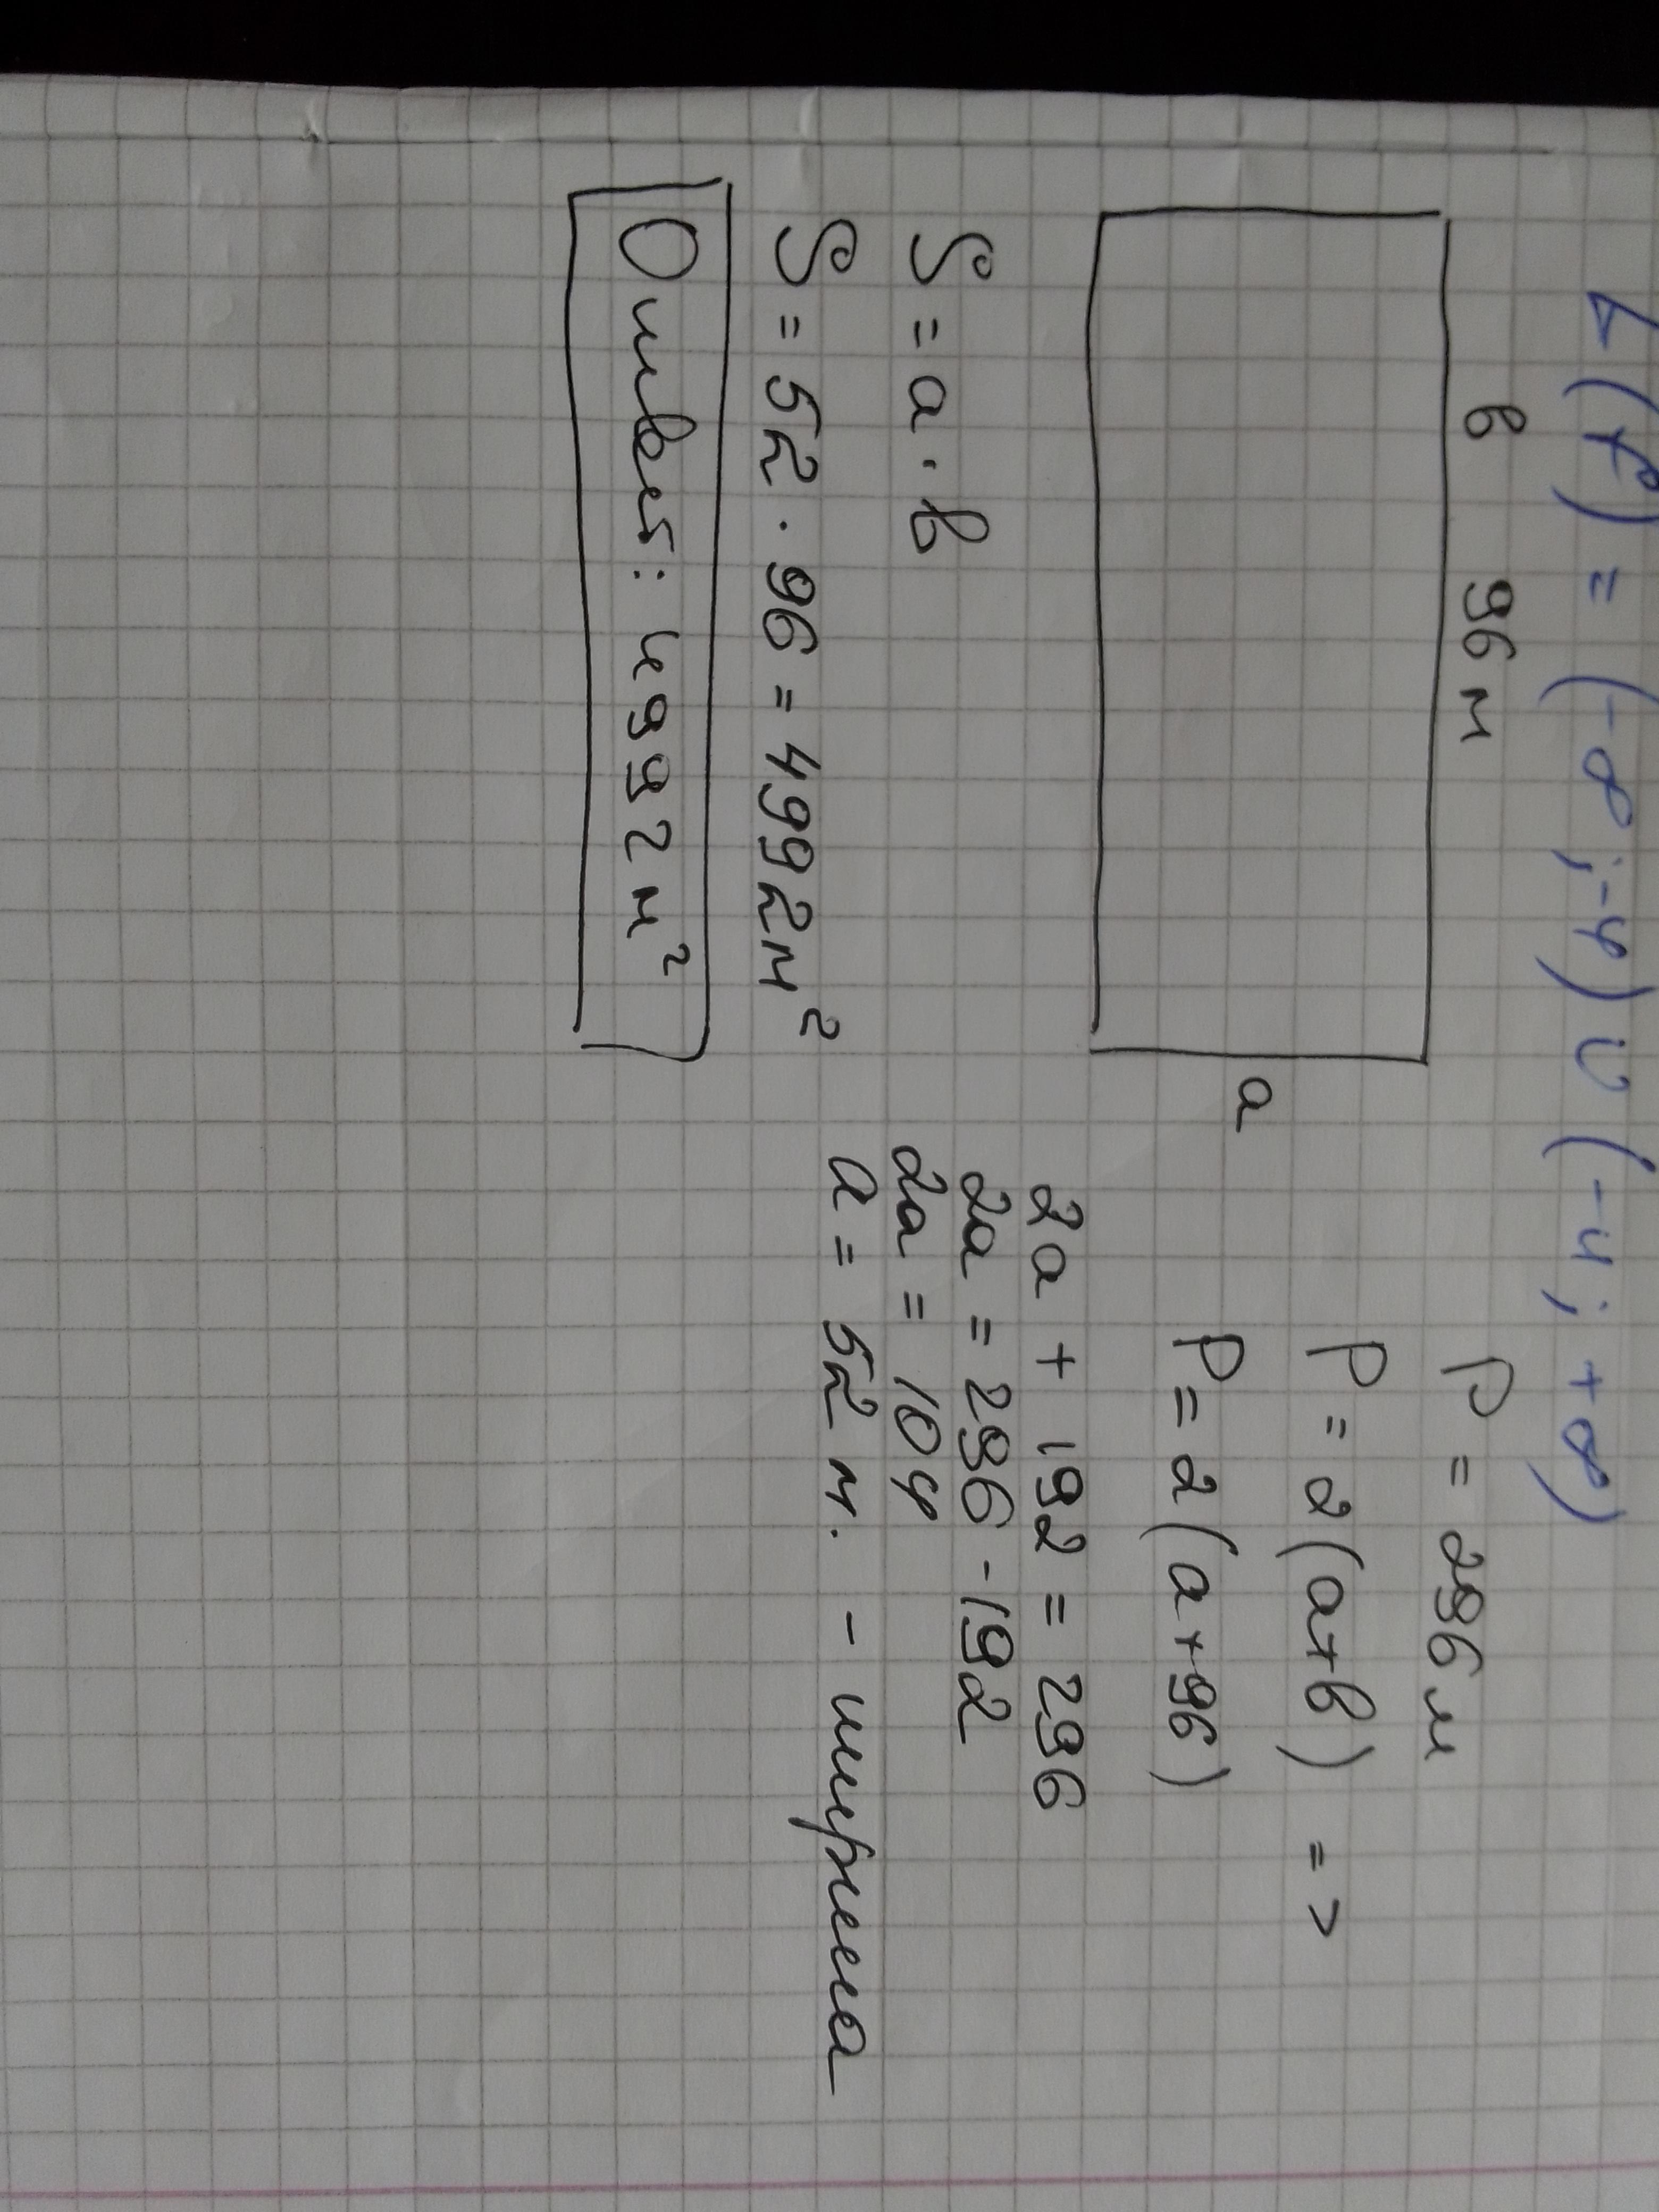 D(f) = (-∞; -4) ∪ (-4; +∞)
в 96 м
a
P = 296 м
P = 2(a+в) =>
P = 2(a+96)
2a + 192 = 296
2a = 296 - 192
2a = 104
a = 52 м. - ширина
S = a · в
S = 52 · 96 = 4992 м²
Ответ: 4992 м²